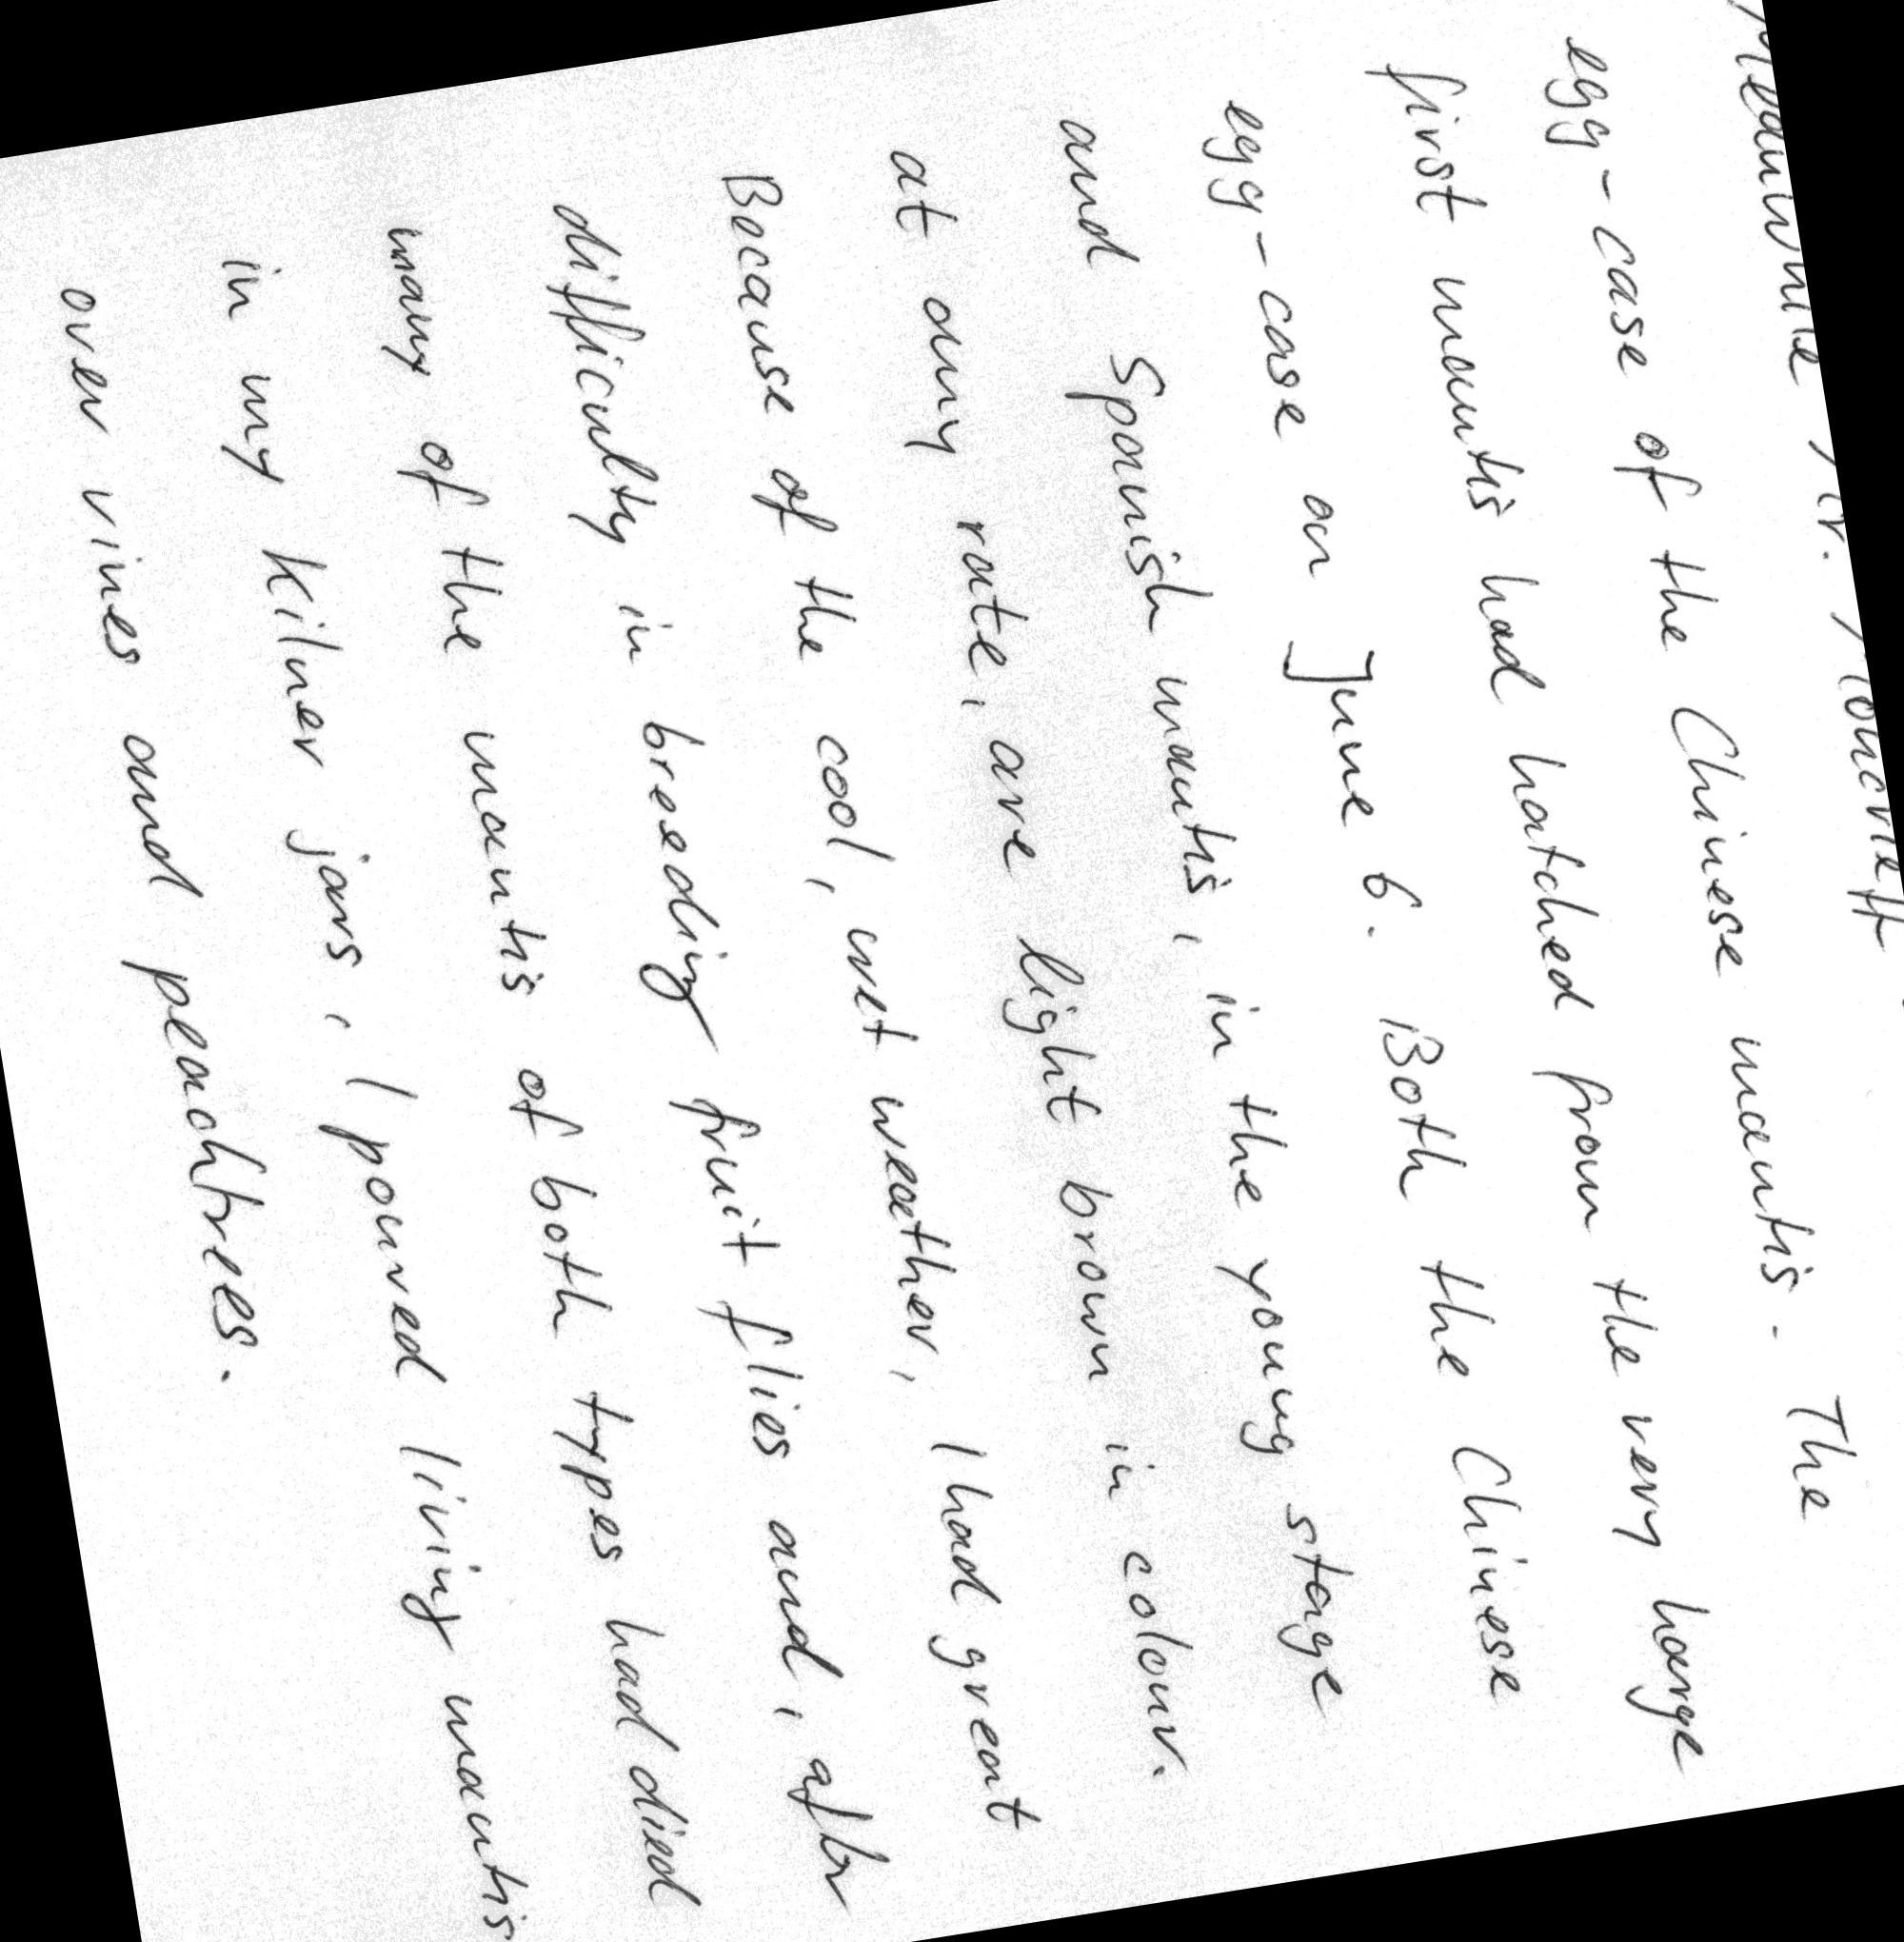 Meanwhile Mr.
egg-case of the Chinese mantis. The
first mantis had hatched from the very large
egg-case on June 6. Both the Chinese
and Spanish mantis, in the young stage
at any rate, are light brown in colour.
Because of the cool, wet weather, I had great
difficulty in breeding fruit flies and, after
many of the mantis of both types had died
in my Kilner jars, I poured living mantis
over vines and peachtrees.